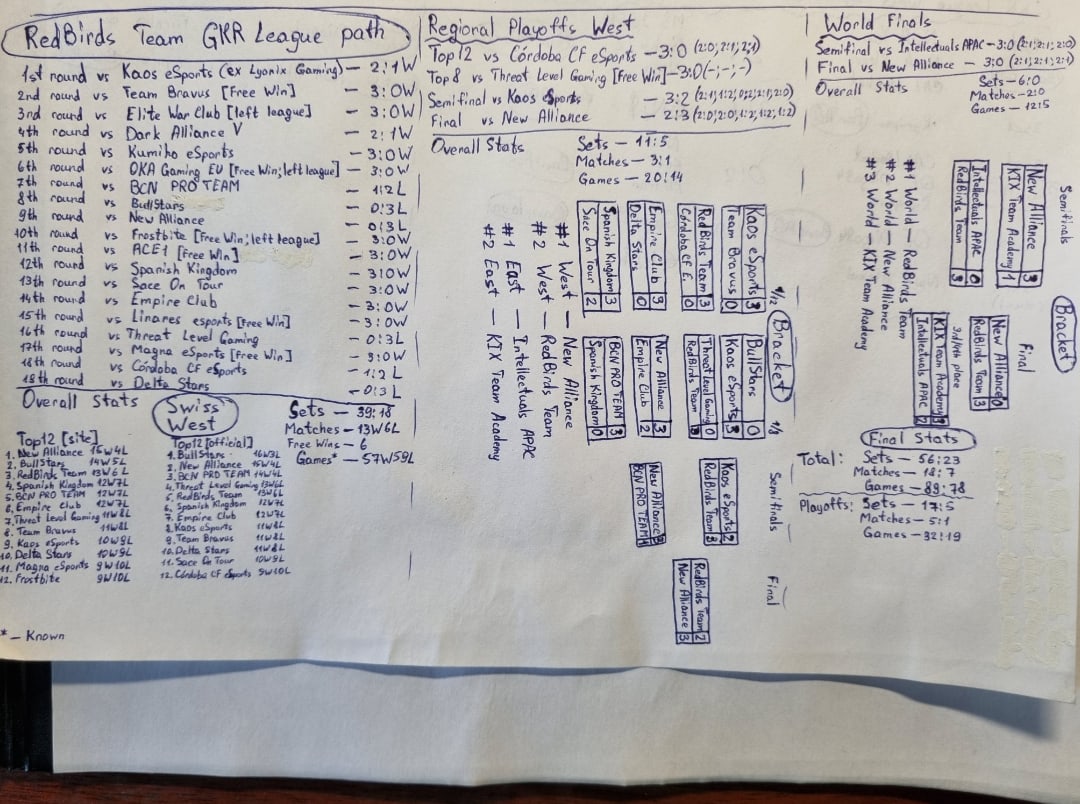 RedBirds Team GKR League path
1st round vs Kaos eSports (ex Lyonix Gaming) — 2:1W
2nd round vs Team Bravus [Free Win] — 3:0W
3rd round vs Elite War Club [left league] — 3:0W
4th round vs Dark Alliance V — 2:1W
5th round vs Kumiho eSports — 3:0W
6th round vs OKA Gaming EU [Free Win; left league] — 3:0W
7th round vs BCN PRO TEAM — 1:2L
8th round vs BullStars — 0:3L
9th round vs New Alliance — 0:3L
10th round vs Frostbite [Free Win; left league] — 3:0W
11th round vs ACE1 [Free Win] — 3:0W
12th round vs Spanish Kingdom — 3:0W
13th round vs Sace On Tour — 3:0W
14th round vs Empire Club — 3:0W
15th round vs Linares esports [Free Win] — 3:0W
16th round vs Threat Level Gaming — 0:3L
17th round vs Magna eSports [Free Win] — 3:0W
18th round vs Córdoba CF eSports — 1:2L
19th round vs Delta Stars — 0:3L
Overall Stats
Swiss West
Sets — 39:18
Matches — 13W6L
Free Wins — 6
Games* — 57W59L
Top12 [site]
1. New Alliance 15W4L
2. BullStars 14W5L
3. RedBirds Team 13W6L
4. Spanish Kingdom 12W7L
5. BCN PRO TEAM 12W7L
6. Empire Club 12W7L
7. Threat Level Gaming 11W8L
8. Team Bravus 11W8L
9. Kaos eSports 10W9L
10. Delta Stars 10W9L
11. Magna eSports 9W10L
12. Frostbite 9W10L
Top12 [official]
1. BullStars 16W3L
2. New Alliance 15W4L
3. BCN PRO TEAM 14W4L
4. Threat Level Gaming 13W6L
5. RedBirds Team 13W6L
6. Spanish Kingdom 12W7L
7. Empire Club 12W7L
8. Kaos eSports 11W8L
9. Team Bravus 11W8L
10. Delta Stars 11W8L
11. Sace On Tour 10W9L
12. Córdoba CF eSports 9W10L
* — Known
Regional Playoffs West
Top12 vs Córdoba CF eSports — 3:0 (2:0; 2:1; 2:1)
Top8 vs Threat Level Gaming [Free Win] — 3:0 (-;-;-)
Semifinal vs Kaos eSports — 3:2 (2:1; 1:2; 0:2; 2:1; 2:0)
Final vs New Alliance — 2:3 (2:0; 2:0; 1:2; 1:2; 1:2)
Overall Stats
Sets — 11:5
Matches — 3:1
Games — 20:14
Bracket
1/12
Kaos eSports 3
Team Bravus 0
RedBirds Team 3
Córdoba CF E. 0
Empire Club 3
Delta Stars 0
Spanish Kingdom 3
Sace On Tour 2
1/8
BullStars 0
Kaos eSports 3
Threat Level Gaming 0
RedBirds Team 3
New Alliance 3
Empire Club 2
BCN PRO TEAM 3
Spanish Kingdom 0
Semifinals
Kaos eSports 2
RedBirds Team 3
New Alliance
BCN PRO TEAM
Final
RedBirds Team 2
New Alliance 3
#1 West — New Alliance
#2 West — RedBirds Team
#1 East — Intellectuals APAC
#2 East — KIX Team Academy
World Finals
Semifinal vs Intellectuals APAC — 3:0 (2:1; 2:1; 2:0)
Final vs New Alliance — 3:0 (2:1; 2:1; 2:1)
Overall Stats
Sets — 6:0
Matches — 2:0
Games — 12:5
Bracket
Semifinals
New Alliance 3
KIX Team Academy 1
Intellectuals APAC 0
RedBirds Team 3
Final
New Alliance 0
RedBirds Team 3
3rd/4th place
KIX Team Academy 3
Intellectuals APAC 2
#1 World — RedBirds Team
#2 World — New Alliance
#3 World — KIX Team Academy
Final Stats
Total: Sets — 56:23
Matches — 18:7
Games — 89:78
Playoffs: Sets — 17:5
Matches — 5:1
Games — 32:19